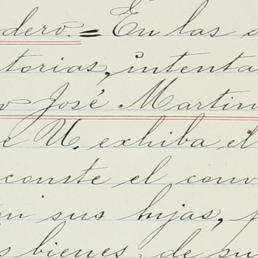 dero. = En las
torias, intenta
o José Martin
e U. exhiba el
conste el conv
n sus hijas,
s bienes de su